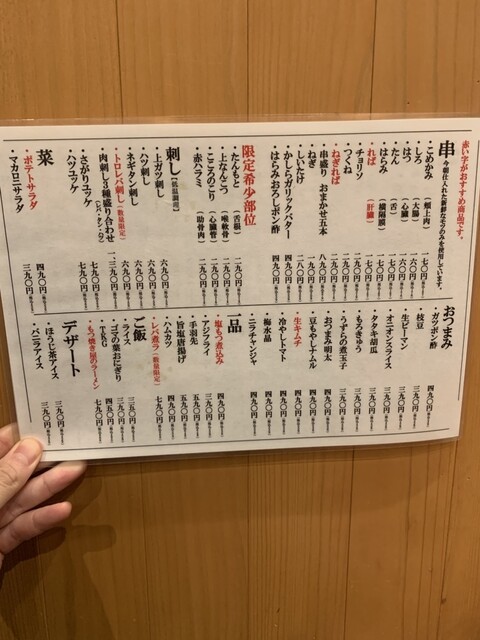 赤い字がおすすめ商品です。
串 今朝仕入れた新鮮なもののみを使用しています。
・こめかみ（頬上肉） 一七〇円
・しろ（大腸） 一六〇円
・はつ（心臓） 一六〇円
・たん（舌） 一七〇円
・はらみ（横隔膜） 一七〇円
・ればー（肝臓） 一七〇円
・チョリソ
・つくね
・ねぎれば
・串盛り おまかせ五本
・ねぎ
・しいたけ
・かしらガリックバター
・はらみおろしポン酢 四九〇円
限定希少部位
・たんもと（舌根）
・上なんこつ（喉軟骨） 二九〇円
・こころのこり（心臓管） 二九〇円
・赤ハラミ（肋骨肉） 二九〇円
刺し【低温調理】
・上ガツ刺し 六九〇円
・ハツ刺し 六九〇円
・ネギタン刺し 六九〇円
・トロレバ刺し（数量限定） 七九〇円
・肉刺し3種盛り合わせ（レバ・タン・ハツ） 一、三九〇円
・さがりユッケ 七九〇円
・ハツユッケ 七九〇円
菜
・ポテトサラダ 四九〇円
・マカロニサラダ 三九〇円
おつまみ
・ガツポン酢 四九〇円
・枝豆 三九〇円
・生ピーマン 三九〇円
・オニオンスライス 三九〇円
・タタキ胡瓜 三九〇円
・もろきゅう 三九〇円
・うずらの煮玉子 三九〇円
・おつまみ明太 四九〇円
・豆もやしナムル 四九〇円
・生キムチ 四九〇円
・冷やしトマト 四九〇円
・梅水晶 四九〇円
・ニラチャンジャ 四九〇円
一品
・塩もつ煮込み 四九〇円
・アジフライ 三九〇円
・手羽先 五九〇円
・旨塩唐揚げ 五九〇円
・ハムカツ 四九〇円
・レバ煮ラー（数量限定） 七九〇円
ご飯
・ライス 三五〇円
・ゴマの葉おにぎり 三九〇円
・TKG 四五〇円
・もつ焼き屋のラーメン 七九〇円
デザート
・ほうじ茶アイス 三九〇円
・バニラアイス 三九〇円